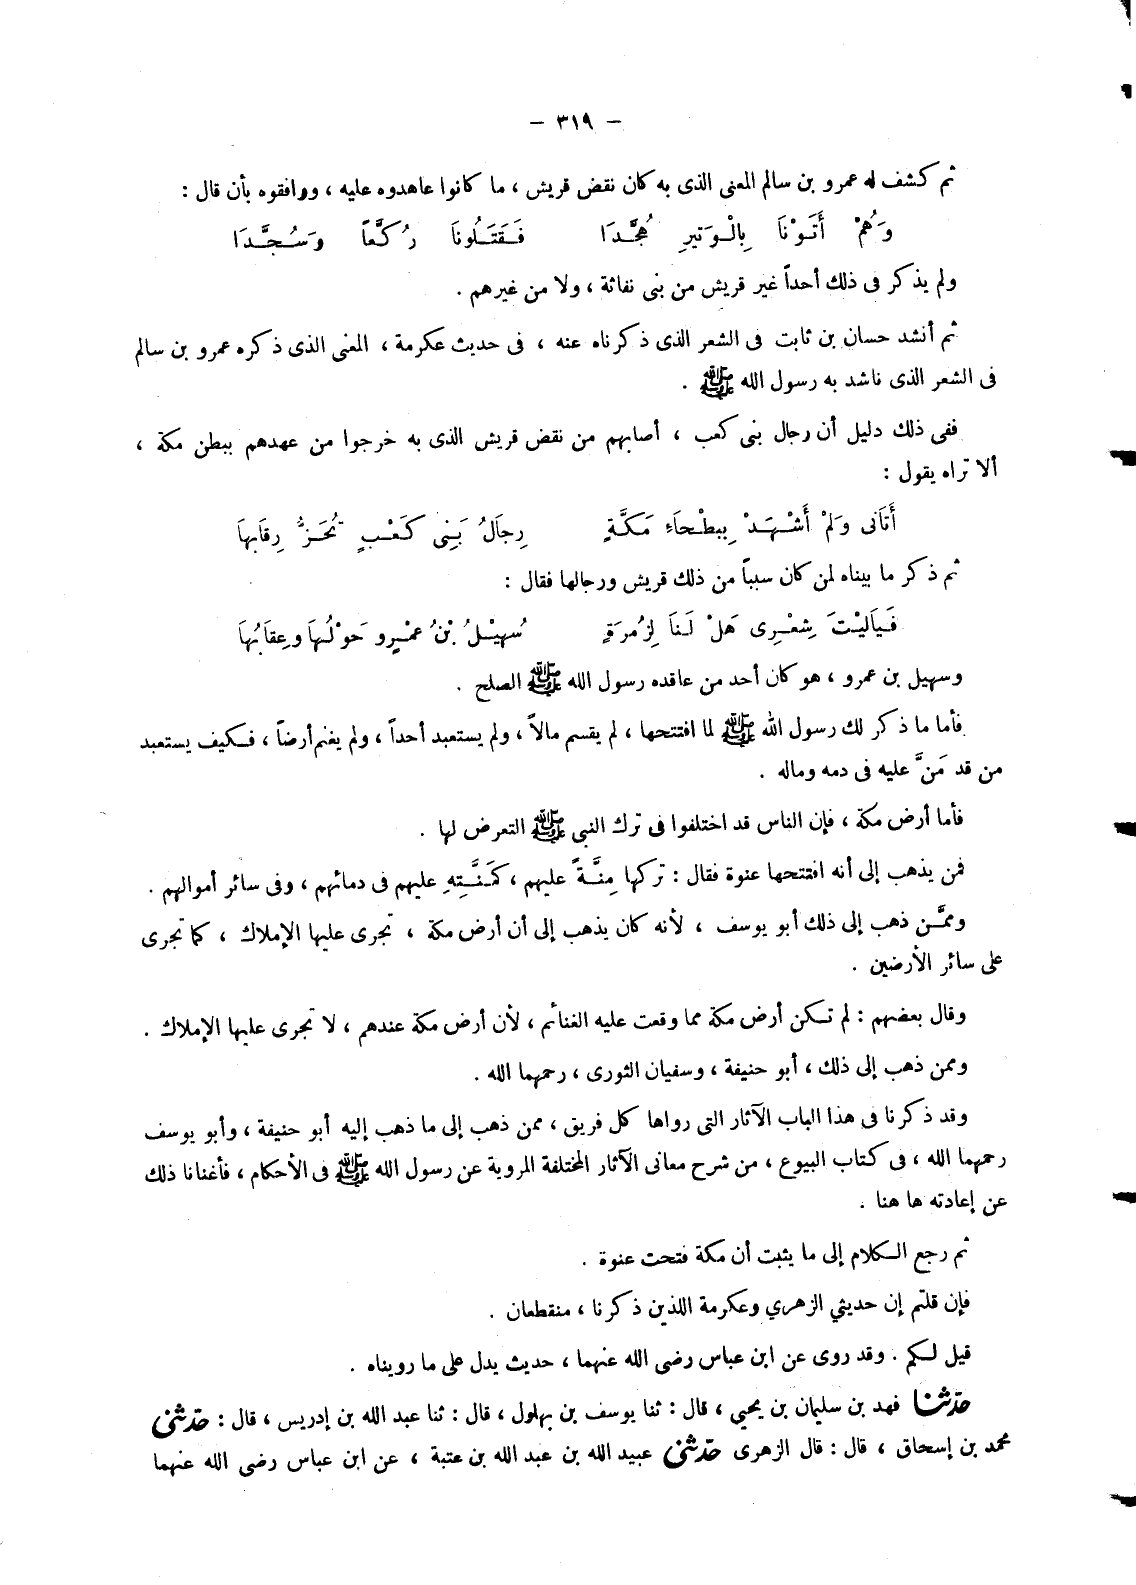 – ٣١٩ –
ثم كشف له عمرو بن سالم المعنى الذى به كان نقض قريش ، ما كانوا عاهدوه عليه ، ووافقوه بأن قال :
وَهُمْ أَتَوْنَا بِالْوَتِيرِ هُجَّدَا فَقَتَلُونَا رُكَّعاً وَسُجَّدَا
ولم يذكر فى ذلك أحداً غير قريش من بنى نفاثة ، ولا من غيرهم .
ثم أنشد حسان بن ثابت فى الشعر الذى ذكرناه عنه ، فى حديث عكرمة ، المعنى الذى ذكره عمرو بن سالم
فى الشعر الذى ناشد به رسول الله ﷺ .
ففى ذلك دليل أن رجال بنى كعب ، أصابهم من نقض قريش الذى به خرجوا من عهدهم ببطن مكة ،
ألا تراه يقول :
أَتَانَى وَلَمْ أَشْهَدْ بِبَطْحَاءِ مَكَّةٍ رِجَالُ بَنِى كَعْبٍ تُحَزُّ رِقَابهَا
ثم ذكر ما بيناه لمن كان سبباً من ذلك قريش ورجالها فقال :
فَيَالَيْتَ شِعْرِى هَلْ لَنَا لِزُمرَةٍ سُهَيْلُ بْنُ عَمْرٍو حَوْلُهَا وعِقَابُهَا
وسهيل بن عمرو ، هو كان أحد من عاقده رسول الله ﷺ الصلح .
فأما ما ذكر لك رسول الله ﷺ لما افتتحها ، لم يقسم مالاً ، ولم يستعبد أحداً ، ولم يغنم أرضاً ، فكيف يستعبد
من قد مَنَّ عليه فى دمه وماله .
فأما أرض مكة ، فإن الناس قد اختلفوا فى ترك النبى ﷺ التعرض لها .
فمن يذهب إلى أنه افتتحها عنوة فقال : تركها مِنَّةً عليهم ، كَمَنَّتِهِ عليهم فى دمائهم ، وفى سائر أموالهم .
وممَّن ذهب إلى ذلك أبو يوسف ، لأنه كان يذهب إلى أن أرض مكة ، تجرى عليها الإملاك ، كما تجرى
على سائر الأرضين .
وقال بعضهم : لم تكن أرض مكة مما وقعت عليه الغنائم ، لأن أرض مكة عندهم ، لا تجرى عليها الإملاك .
وممن ذهب إلى ذلك ، أبو حنيفة ، وسفيان الثورى ، رحمهما الله .
وقد ذكرنا فى هذا الباب الآثار التى رواها كل فريق ، ممن ذهب إلى ما ذهب إليه أبو حنيفة ، وأبو يوسف
رحمهما الله ، فى كتاب البيوع ، من شرح معانى الآثار المختلفة المروية عن رسول الله ﷺ فى الأحكام ، فأغنانا ذلك
عن إعادته ها هنا .
ثم رجع الكلام إلى ما يثبت أن مكة فتحت عنوة .
فإن قلتم إن حديثي الزهري وعكرمة اللذين ذكرنا ، منقطعان .
قيل لكم . وقد روى عن ابن عباس رضى الله عنهما ، حديث يدل على ما رويناه .
حدّثنا فهد بن سليمان بن يحيي ، قال : ثنا يوسف بن بهلول ، قال : ثنا عبد الله بن إدريس ، قال : حدّثنى
محمد بن إسحاق ، قال : قال الزهرى حدّثنى عبيد الله بن عبد الله بن عتبة ، عن ابن عباس رضى الله عنهما